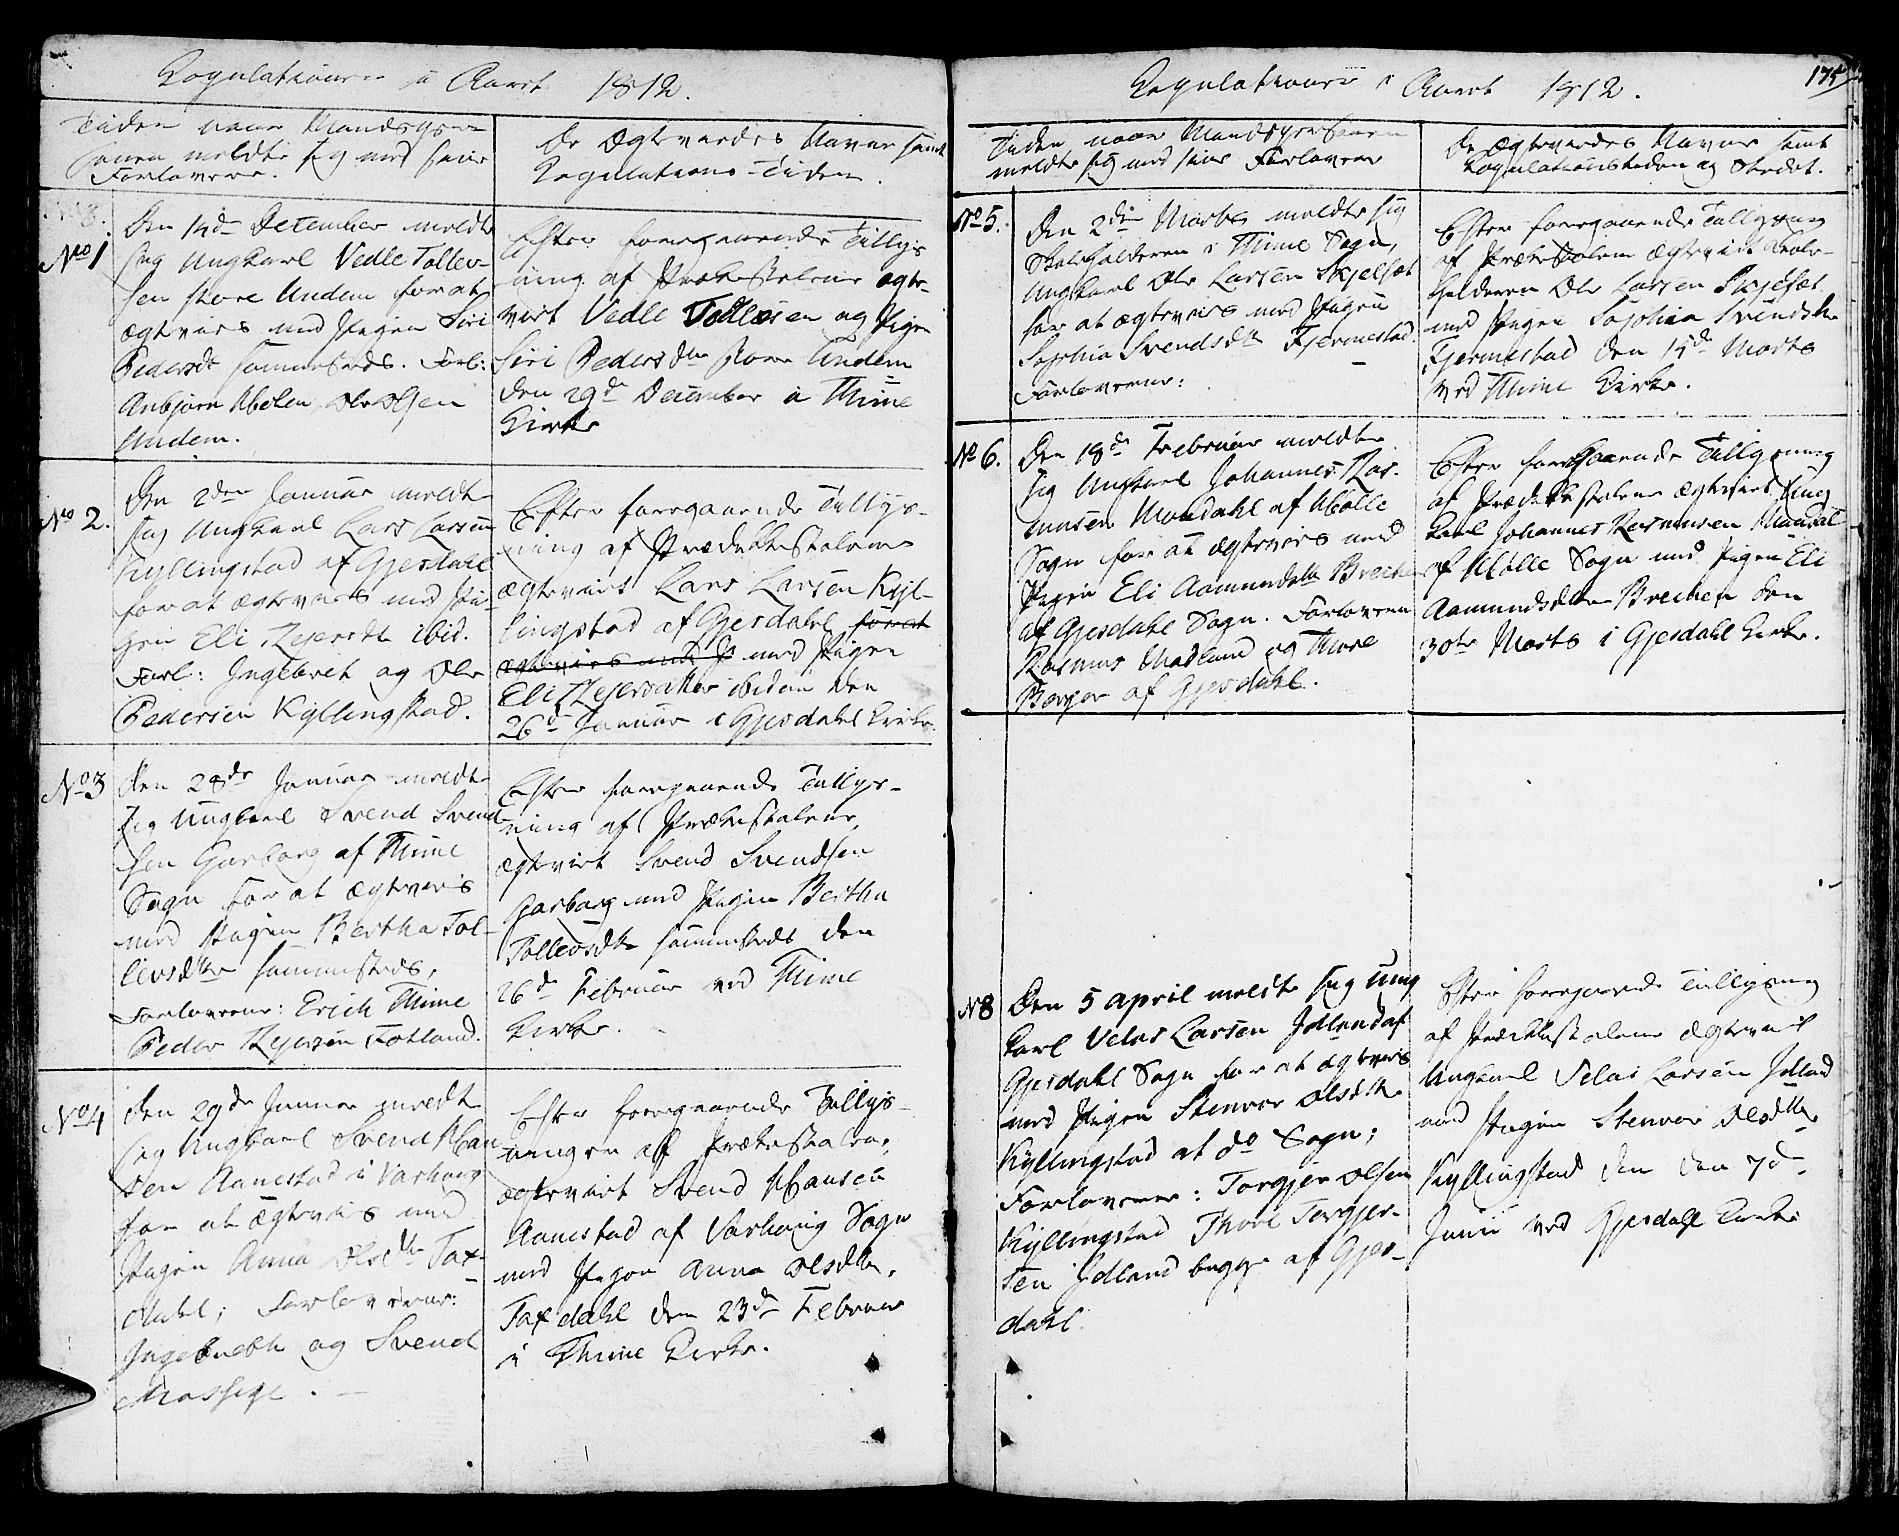 Copulationer i Aaret 1812.
Tiden naar Mandsper-
sonen meldte sig med sine
Forlovere.
De Ægteviedes Navne samt
Copulations-Tiden.
No 1
Den 14de December meldte
sig Ungkarl Vedle Tollev-
sen store Undem for at
ægtevies med Pigen Siri
Pedersdr sammesteds. Forl:
Anbjørn Ole Olsen
Undem.
Efter foregaaende Tillys-
ning af Prækestolene ægte-
viet Vedle Tollevsen og Pige
Siri Pedersdtr store Undem
den 29de December i Thime
Kirke
No 2.
Den 2den Januar meldte
sig Ungkarl Lars Larsen
Kyllingstad af Gjesdahl
for at ægtevies med Pi-
gen Eli Rejersdr ibid.
Forl: Ingebret og Ole
Pedersen Kyllingstad.
Efter foregaaende Tillys-
ning af Prædikestolene
ægteviet Lars Larsen Kyl-
lingstad af Gjesdahl for at
ægtevies med P med Pigen
Eli Rejersdatter ibidem den
26de Januar i Gjesdahl Kirke.
No 3
Den 28de Januar meldte
sig Ungkarl Svend Svend-
sen Garborg af Thime
Sogn for at ægtevies
med Pigen Bertha Tol-
levsdtr sammesteds,
Forloverne: Erich Thime
Peder Rejersen Fotland.
Efter foregaaende Tillys-
ning af Prækestolene,
ægteviet Svend Svendsen
Garborg med Pigen Bertha
Tollevsdtr sammesteds den
26de Februar ved Thime
Kirke.
No 4
Den 29de Januar meldte
sig Ungkarl Svend Han-
sen Aanestad i Varhoug
for at ægtevies med
Pigen Anna Olsdtr Tax-
dahl; Forloverne:
Ingebreth og Svend
Mossige.
Efter foregaaende Tillys-
ningen af Prækestolene,
ægteviet Svend Hansen
Aanestad af Varhoug Sogn
med Pigen Anna Olsdtr,
Taxdahl den 23de Februar
i Thime Kirke.
Copulationer i Aaret 1812.
175
Tiden naar Mandspersonen
meldte sig med sine Forlovere
De Ægteviedes Navne samt
Copulationstiden og Stedet.
No 5.
Den 2den Marts meldte sig
Skoleholderen i Thime Sogn,
Ungkarl Ole Larsen Skjelset
for at ægtevies med Pigen
Sophia Svendsdtr Fjermestad.
Forloverne:
Efter foregaaende Tillysning
af Prækestolen ægteviet Skole-
holderen Ole Larsen Skjelset
med Pigen Sophia Svendsdtr
Fjermestad den 15de Marts
ved Thime Kirke.
No 6.
Den 18de Februar meldte
sig Ungkarl Johannes Ras-
musen Mandahl af Holle
Sogn for at ægtevies med
Pigen Eli Aamundsdtr Breche
af Gjesdahl Sogn. Forlovere
Rasmus Madland og Thore
Berge af Gjesdahl.
Efter foregaaende Tillysning
af Prædikestolene ægtevies Ung
karl Johannes Rasmusen Mandal
af Holle Sogn med Pigen Eli
Aamundsdtr Brechen den
30te Marts i Gjesdahl Kirke.
N 8
Den 5 April meldte sig Ung
karl Velas Larsen Idland af
Gjesdahl Sogn for at ægtevies
med Pigen Stenvor Olsdtr
Kyllingstad af do Sogn;
Forloverne: Torgjer Olsen
Kyllingstad Thore Torgjer-
sen Idland begge af Gjes-
dahl.
Efter foregaaende Tillysning
af Prædikestolene ægteviet
Ungkarl Velas Larsen Idland
med Pigen Stenvor Olsdtr
Kyllingstad den den 7de
Junii ved Gjesdahl Kirke